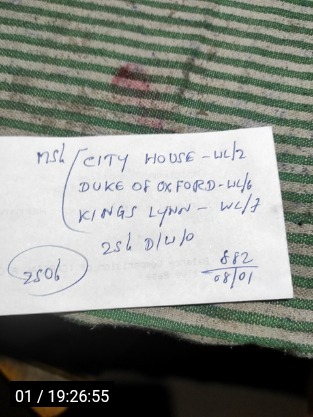 MSh CITY HOUSE - WL/2
DUKE OF OXFORD - WL/6
KINGS LYNN - WL/7
2Sh D/W/O
2SOh
882
08/01
01 / 19:26:55